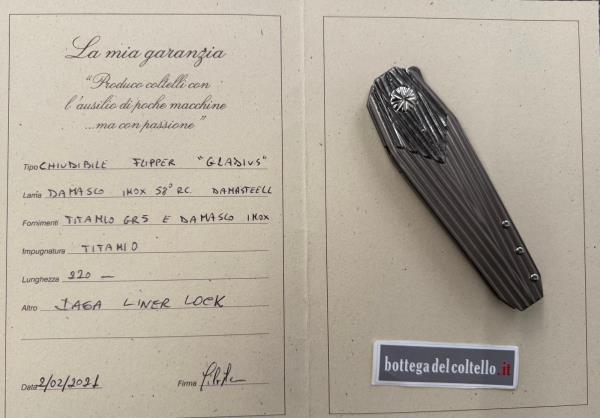 La mia garanzia
"Produco coltelli con
l'ausilio di poche macchine
...ma con passione"
Tipo CHIUDIBILE FLIPPER "GLADIUS"
Lama DAMASCO INOX 58° RC. DAMASTEELL
Fornimenti TITANIO GR5 E DAMASCO INOX
Impugnatura TITANIO
Lunghezza 220 —
Altro LINER LOCK
Data 2/02/2021 Firma
bottegadelcoltello.it